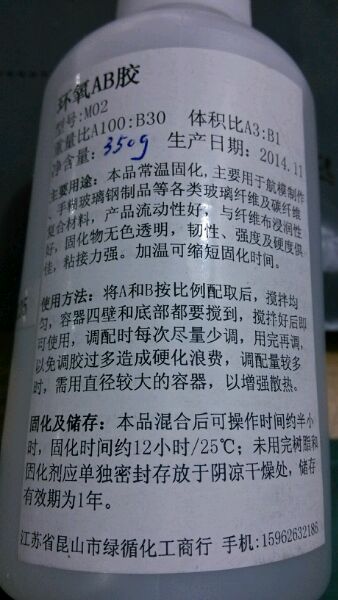 环氧AB胶
型号:M02
重量比A100:B30 体积比A3:B1
净含量: 350g 生产日期: 2014.11
主要用途: 本品常温固化,主要用于航模制作
、手糊玻璃钢制品等各类玻璃纤维及碳纤维
复合材料, 产品流动性好, 与纤维布浸润性
好, 固化物无色透明, 韧性、强度及硬度俱
佳, 粘接力强。加温可缩短固化时间。
使用方法: 将A和B按比例配取后, 搅拌均
匀, 容器四壁和底部都要搅到, 搅拌好后即
可使用, 调配时每次尽量少调, 用完再调,
以免调胶过多造成硬化浪费, 调配量较多
时, 需用直径较大的容器, 以增强散热。
固化及储存: 本品混合后可操作时间约半小
时, 固化时间约12小时/25℃; 未用完树脂和
固化剂应单独密封存放于阴凉干燥处, 储存
有效期为1年。
江苏省昆山市绿循化工商行 手机:15962632186